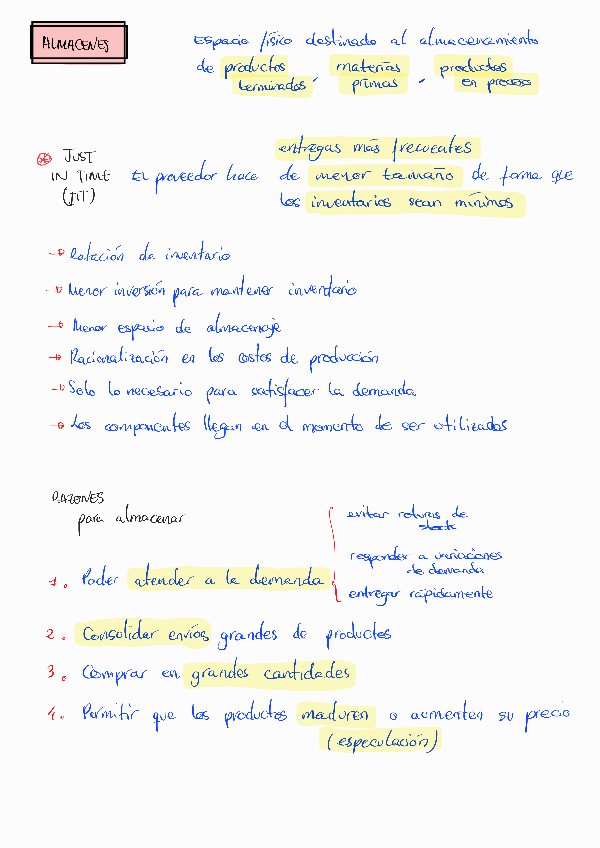 ALMACENES
Espacio físico destinado al almacenamiento
de productos terminados, materias primas, productos en proceso
JUST IN TIME (JIT)
El proveedor hace entregas más frecuentes
de menor tamaño de forma que
los inventarios sean mínimos
→ Rotación de inventario
→ Menor inversión para mantener inventario
→ Menor espacio de almacenaje
→ Racionalización en los costos de producción
→ Solo lo necesario para satisfacer la demanda
→ Los componentes llegan en el momento de ser utilizados
RAZONES
para almacenar
1. Poder atender a la demanda
evitar roturas de
stock
responder a variaciones
de demanda
entregar rápidamente
2. Consolidar envíos grandes de productos
3. Comprar en grandes cantidades
4. Permitir que los productos maduren o aumenten su precio
(especulación)